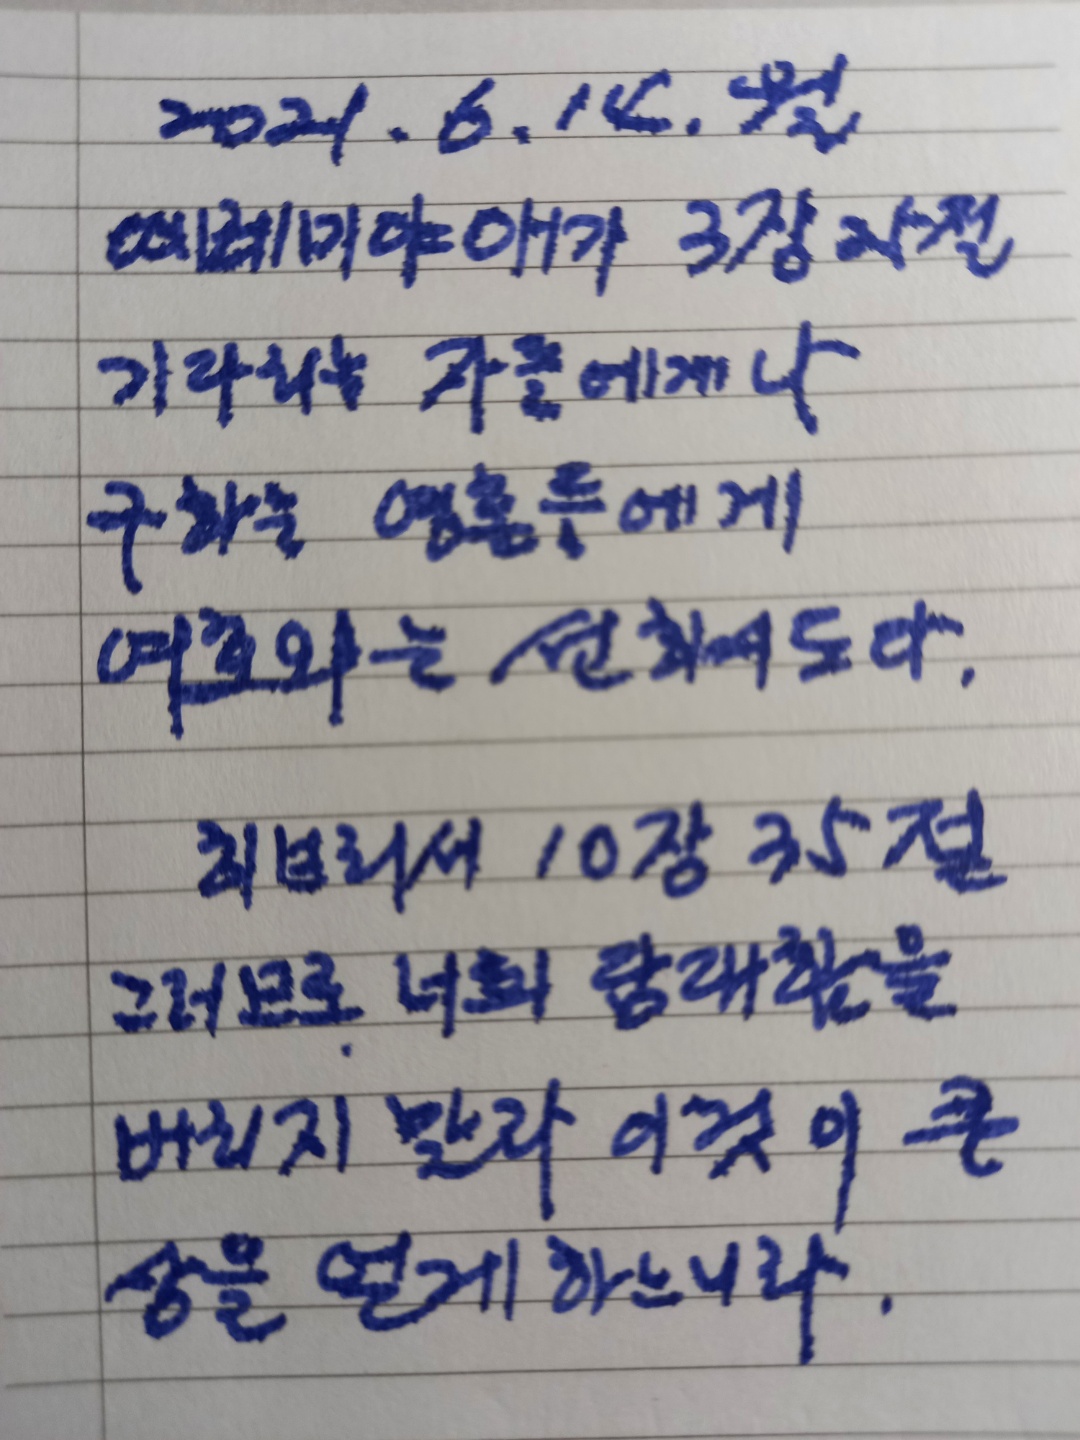 2021. 6. 14. 월
예레미야애가 3장 25절
기다리는 자들에게나
구하는 영혼들에게
여호와는 선하시도다.
히브리서 10장 35절
그러므로 너희 담대함을
버리지 말라 이것이 큰
상을 얻게 하느니라.